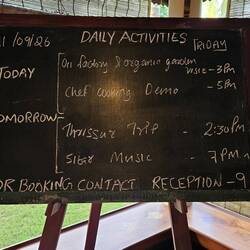 11/09/26 DAILY ACTIVITIES FRIDAY
TODAY
Oil factory & organic garden
visit - 3PM
Chef Cooking Demo - 5PM
TOMORROW
Thrissur Trip - 2:30PM
Sitar Music - 7PM
OR BOOKING CONTACT RECEPTION - 9